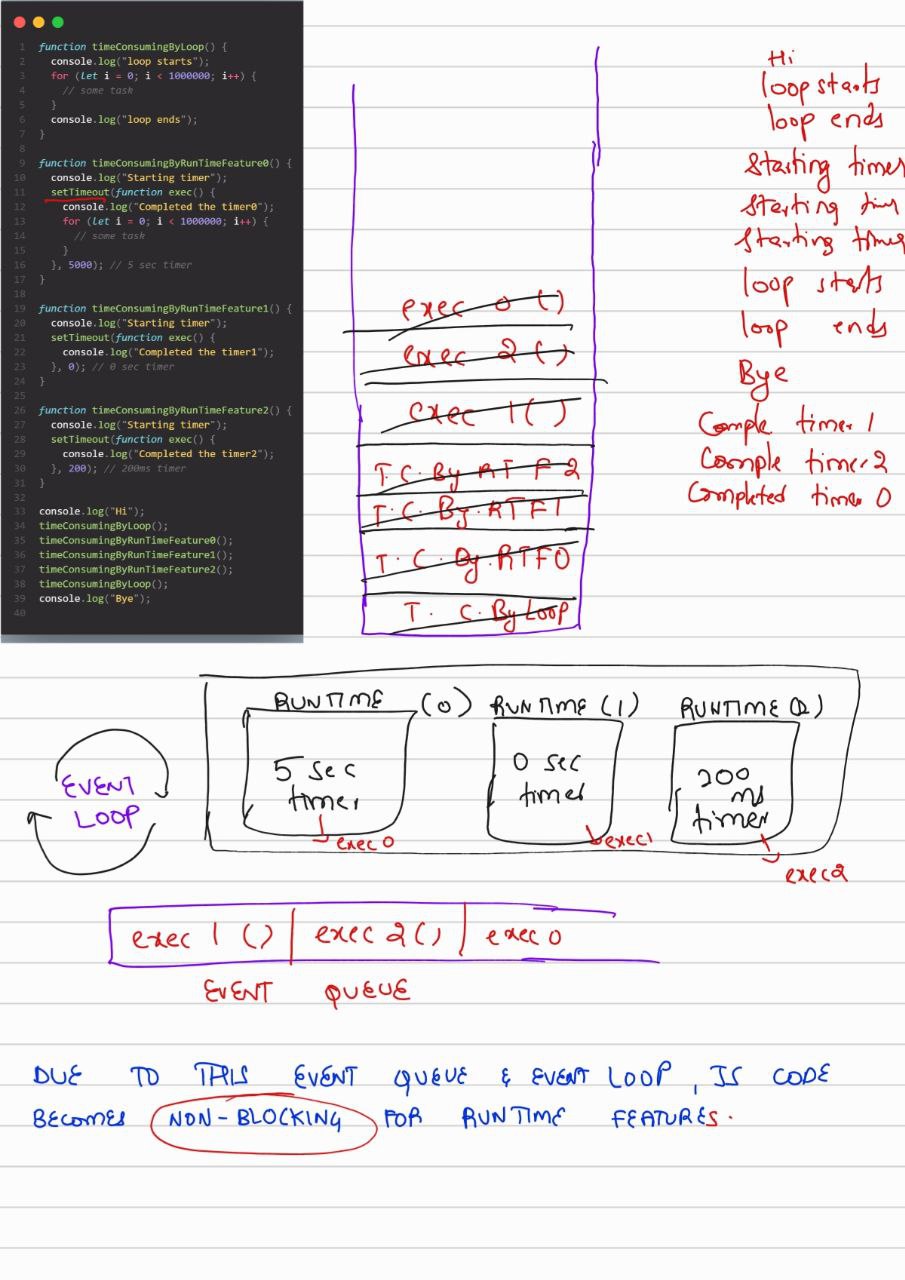 1 function timeConsumingByLoop() {
2 console.log("loop starts");
3 for (let i = 0; i < 1000000; i++) {
4 // some task
5 }
6 console.log("loop ends");
7 }
8
9 function timeConsumingByRunTimeFeature0() {
10 console.log("Starting timer");
11 setTimeout(function exec() {
12 console.log("Completed the timer0");
13 for (let i = 0; i < 1000000; i++) {
14 // some task
15 }
16 }, 5000); // 5 sec timer
17 }
18
19 function timeConsumingByRunTimeFeature1() {
20 console.log("Starting timer");
21 setTimeout(function exec() {
22 console.log("Completed the timer1");
23 }, 0); // 0 sec timer
24 }
25
26 function timeConsumingByRunTimeFeature2() {
27 console.log("Starting timer");
28 setTimeout(function exec() {
29 console.log("Completed the timer2");
30 }, 200); // 200ms timer
31 }
32
33 console.log("Hi");
34 timeConsumingByLoop();
35 timeConsumingByRunTimeFeature0();
36 timeConsumingByRunTimeFeature1();
37 timeConsumingByRunTimeFeature2();
38 timeConsumingByLoop();
39 console.log("Bye");
40
exec 0 ()
exec 2 ()
exec 1 ()
T.C. By RT F 2
T.C. By.RTF1
T.C.By.RTF0
T. C.By Loop
Hi
loop starts
loop ends
Starting timer
Starting tim
Starting timer
loop starts
loop ends
Bye
Comple timer 1
Comple timer 2
Completed timer 0
RUNTIME (0) RUNTIME (1) RUNTIME (2)
5 sec
timer
exec 0
0 sec
timer
exec1
200
ms
timer
exec2
EVENT
LOOP
exec 1 () exec 2 () exec 0
EVENT QUEUE
DUE TO THIS EVENT QUEUE & EVENT LOOP, JS CODE
BECOMES NON-BLOCKING FOR RUNTIME FEATURES.